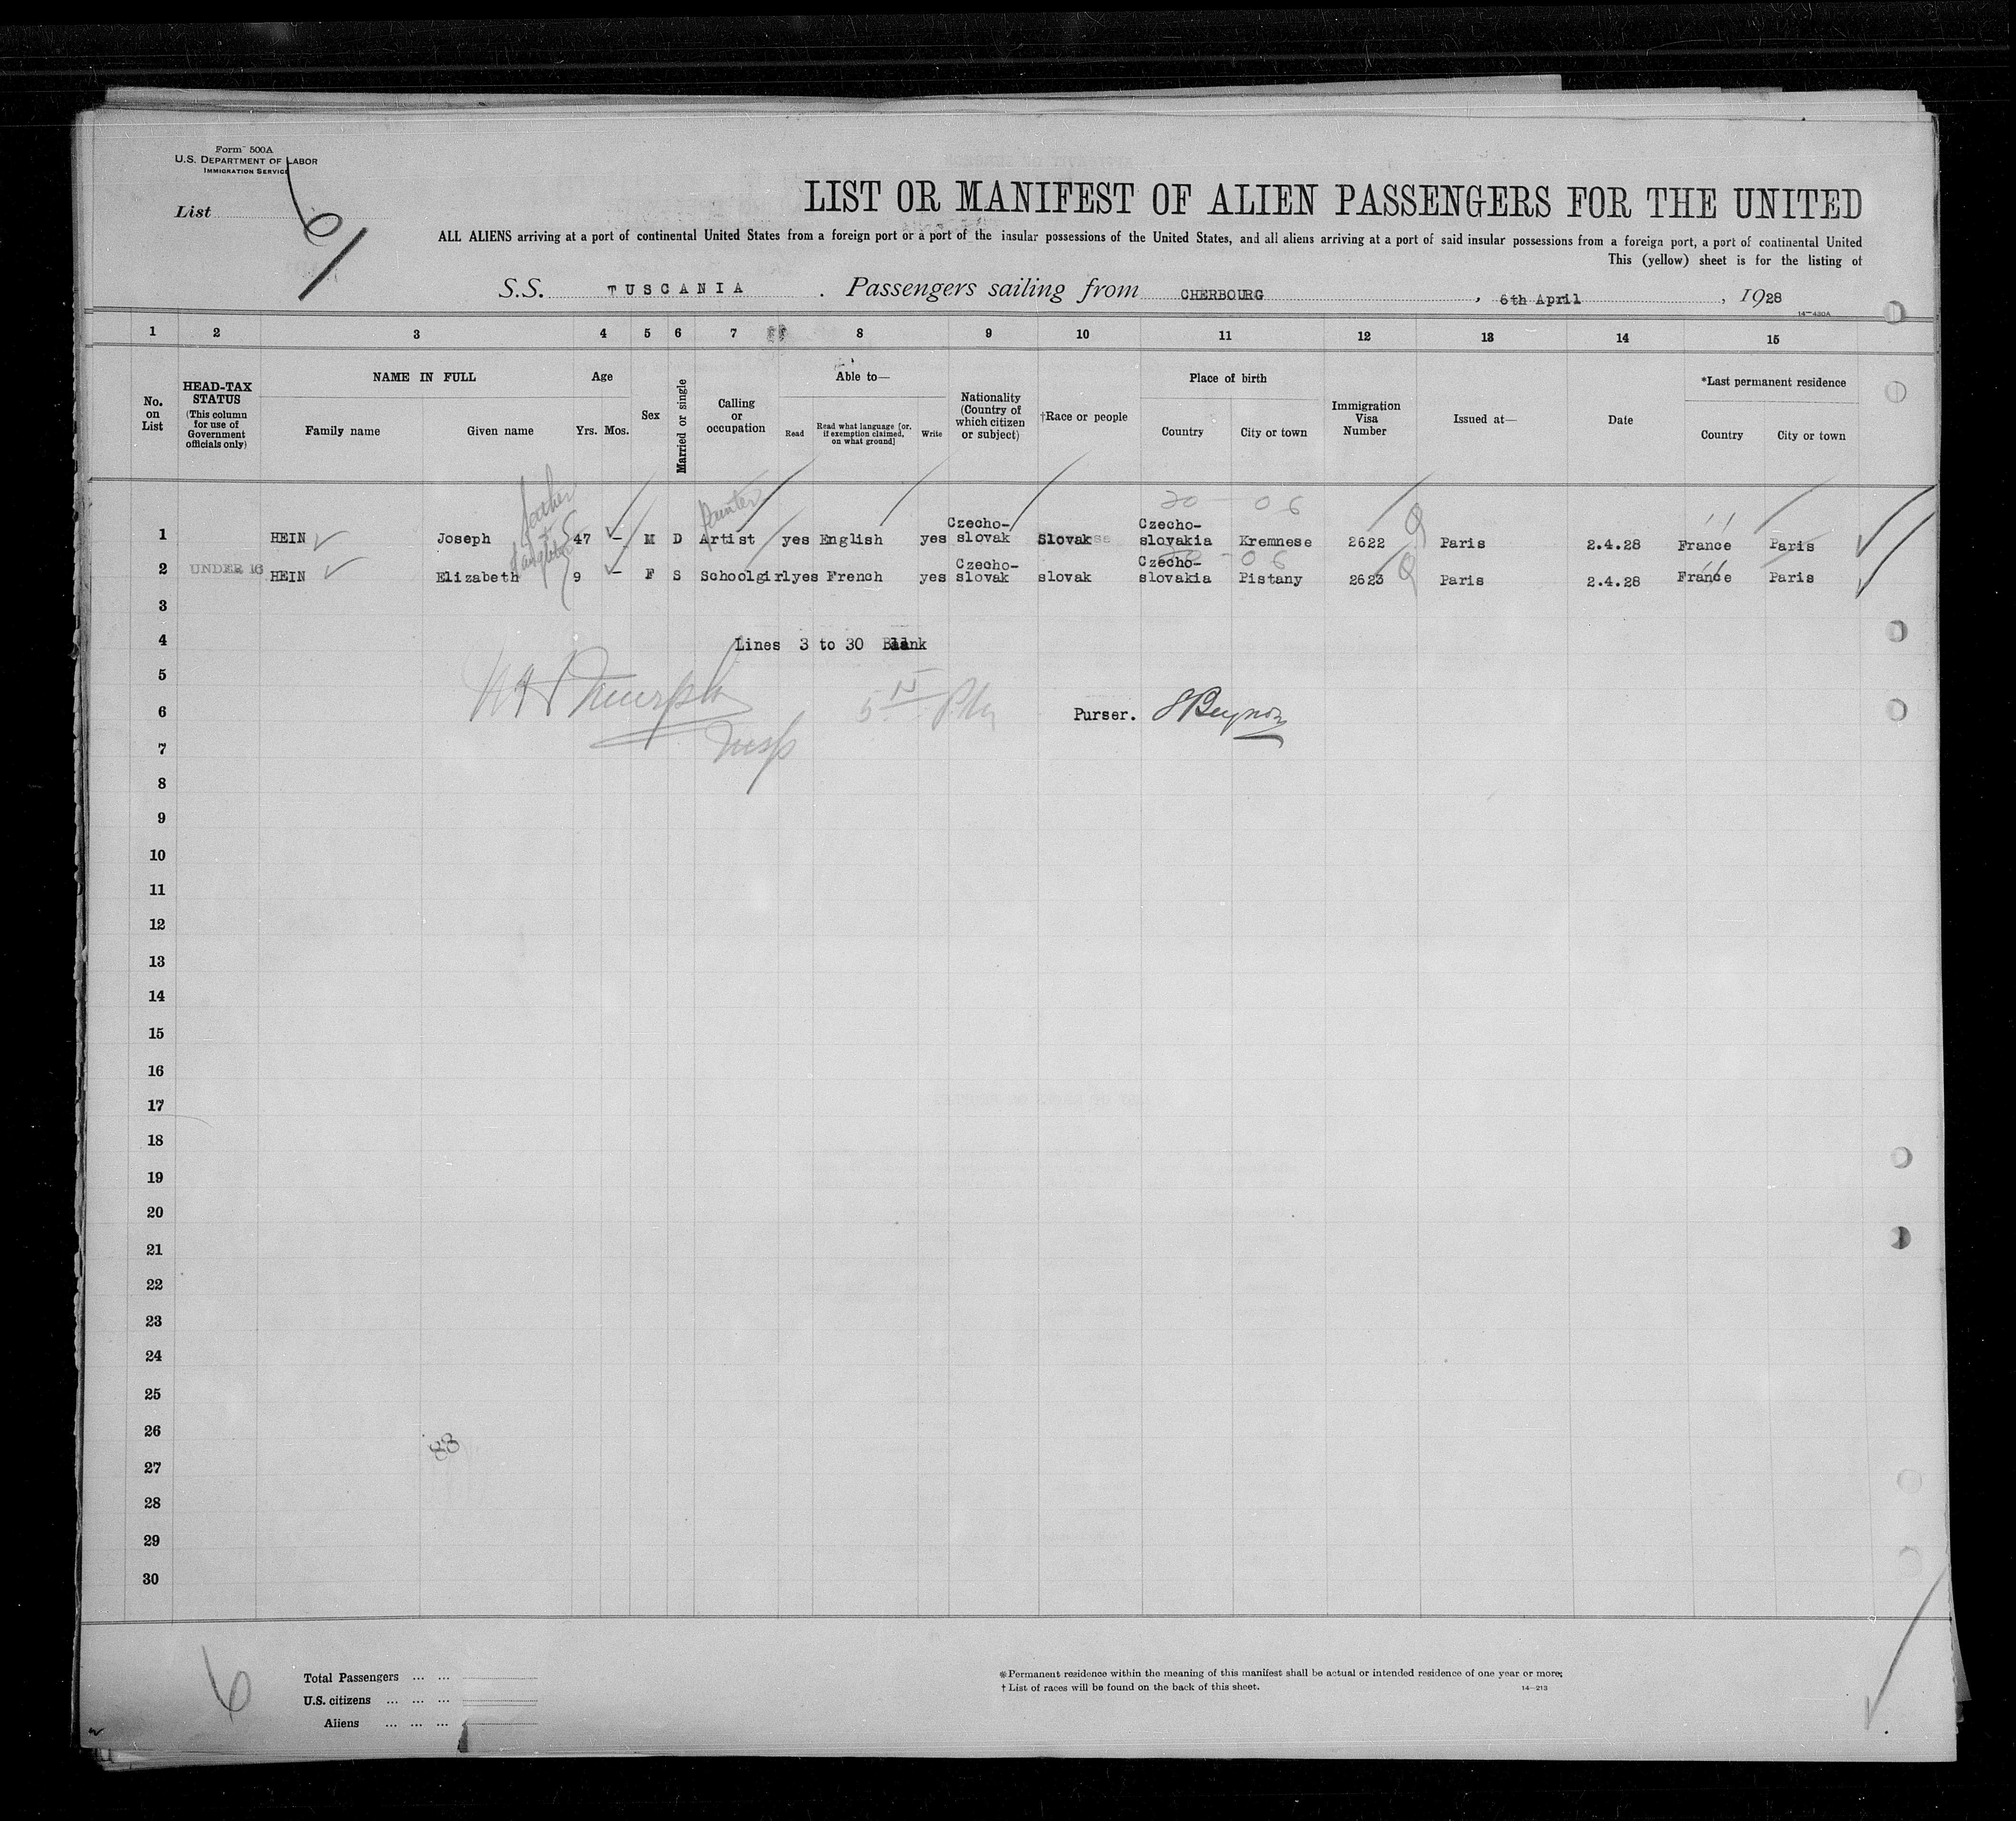 Form 500A
U.S. DEPARTMENT OF LABOR
IMMIGRATION SERVICE
List 6
LIST OR MANIFEST OF ALIEN PASSENGERS FOR THE UNITED
ALL ALIENS arriving at a port of continental United States from a foreign port or a port of the insular possessions of the United States, and all aliens arriving at a port of said insular possessions from a foreign port, a port of continental United
This (yellow) sheet is for the listing of
S.S. TUSCANIA . Passengers sailing from CHERBOURG , 6th April , 1928
14—430A
1 2 3 4 5 6 7 8 9 10 11 12 13 14 15
No. on List
HEAD-TAX STATUS (This column for use of Government officials only)
NAME IN FULL
Family name Given name
Age
Yrs. Mos.
Sex
Married or single
Calling or occupation
Able to—
Read Read what language [or, if exemption claimed, on what ground] Write
Nationality (Country of which citizen or subject)
†Race or people
Place of birth
Country City or town
Immigration Visa Number
Issued at—
Date
*Last permanent residence
Country City or town
father
daughter
Painter
20 - 06
1 HEIN Joseph 47 — M D Artist yes English yes Czecho-slovak Slovak Czecho-slovakia Kremnese 2622 Paris 2.4.28 France Paris
20 - 06
2 UNDER 16 HEIN Elizabeth 9 — F S Schoolgirl yes French yes Czecho-slovak slovak Czecho-slovakia Pistany 2623 Paris 2.4.28 France Paris
3
4 Lines 3 to 30 Blank
5
6 Purser.
7
8
9
10
11
12
13
14
15
16
17
18
19
20
21
22
23
24
25
26
27
28
29
30
6
Total Passengers ... ...
U.S. citizens ... ... ...
Aliens ... ... ...
*Permanent residence within the meaning of this manifest shall be actual or intended residence of one year or more.
† List of races will be found on the back of this sheet.
14—213